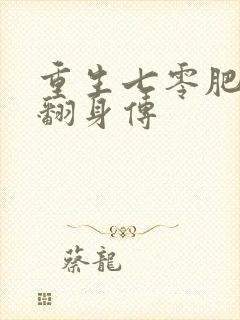 重生七零肥
翻身傳
蔡龍